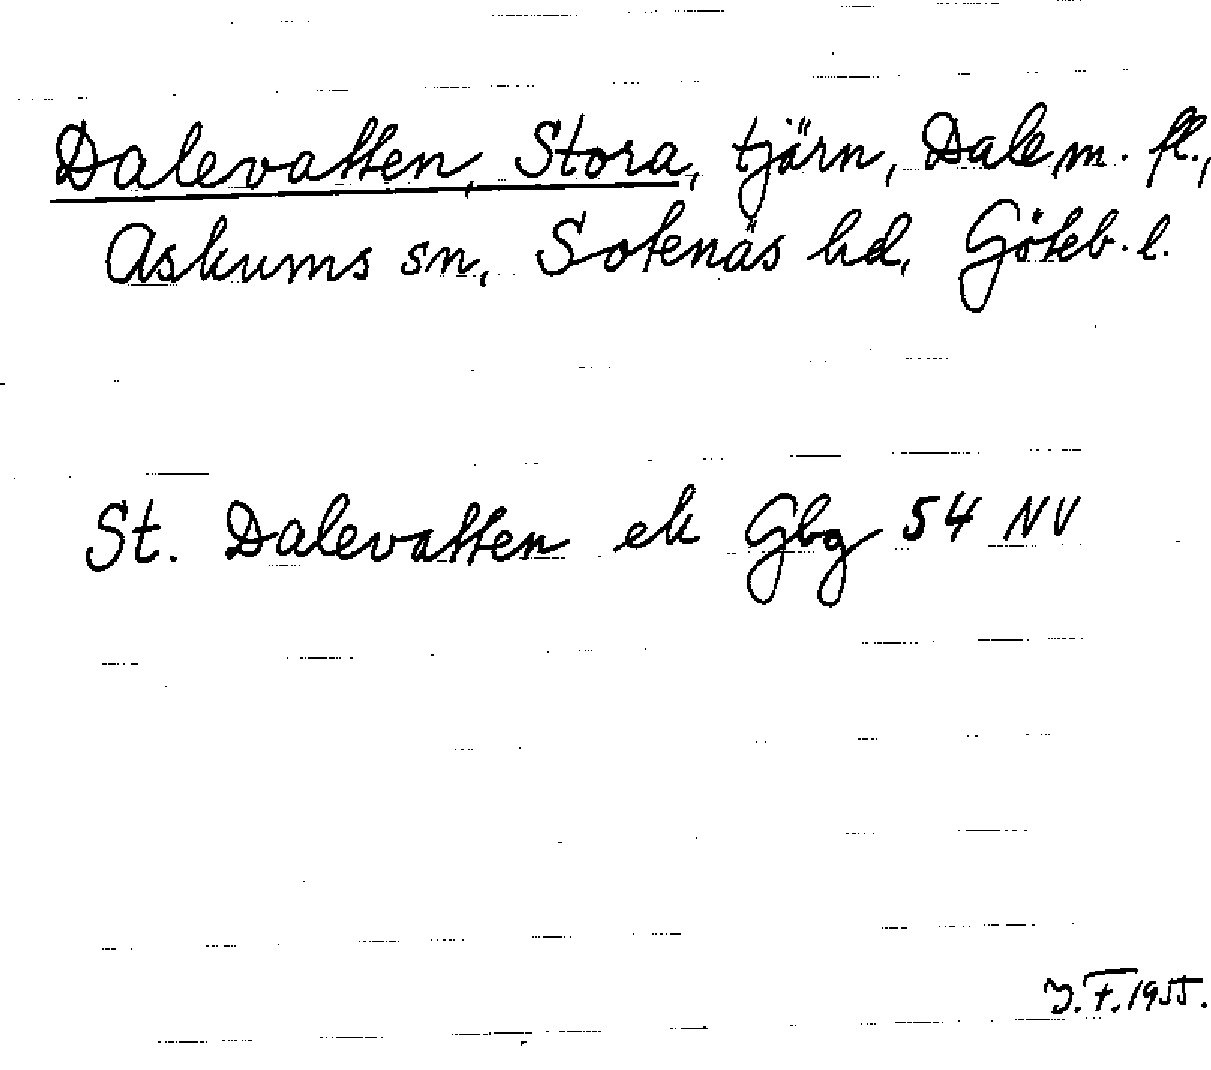 Dalevatten, Stora, tjärn, Dale m. fl.,
Askums sn, Sotenäs hd, Göteb. l.
St. Dalevatten ek Gbg 54 NV
Y.F. 1955.